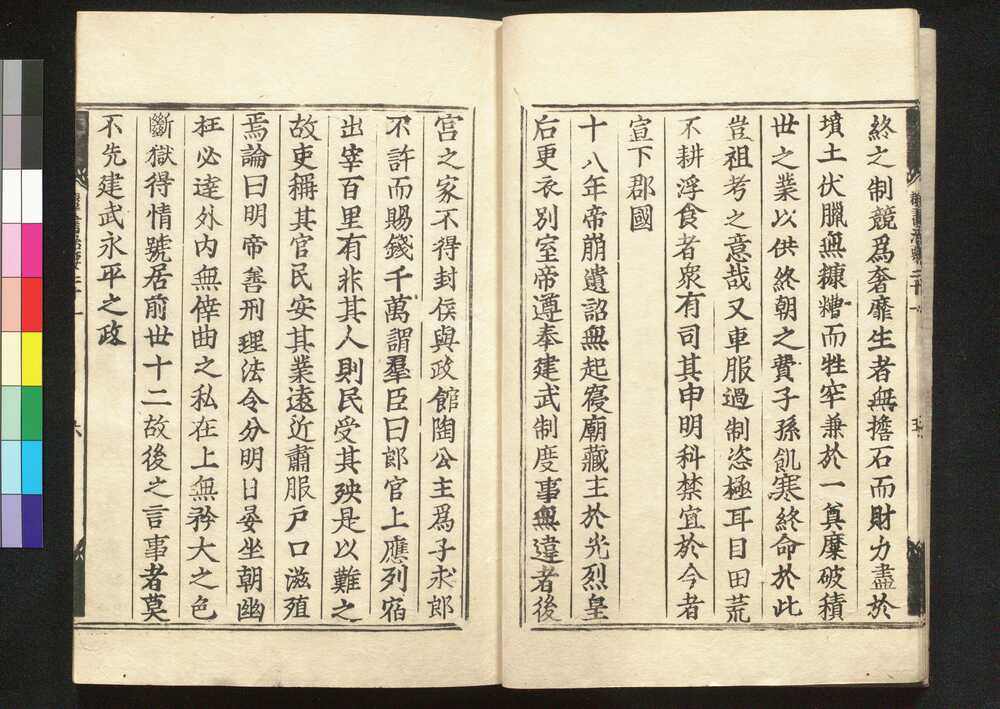 終之制競爲奢靡生者無擔石而財力盡於
墳土伏臘無糠糟而牲牢兼於一奠糜破積
世之業以供終朝之費子孫飢寒終命於此
豈祖考之意哉又車服過制恣極耳目田荒
不耕浮食者衆有司其申明科禁宜於今者
宣下郡國
十八年帝崩遺詔無起寑廟藏主於光烈皇
后更衣別室帝遵奉建武制度事無違者後
宮之家不得封侯與政館陶公主爲子求郎
不許而賜錢千萬謂羣臣曰郎官上應列宿
出宰百里有非其人則民受其殃是以難之
故吏稱其官民安其業遠近肅服戶口滋殖
焉論曰明帝善刑理法令分明日晏坐朝幽
枉必達外内無倖曲之私在上無矜大之色
斷獄得情號居前世十二故後之言事者莫
不先建武永平之政